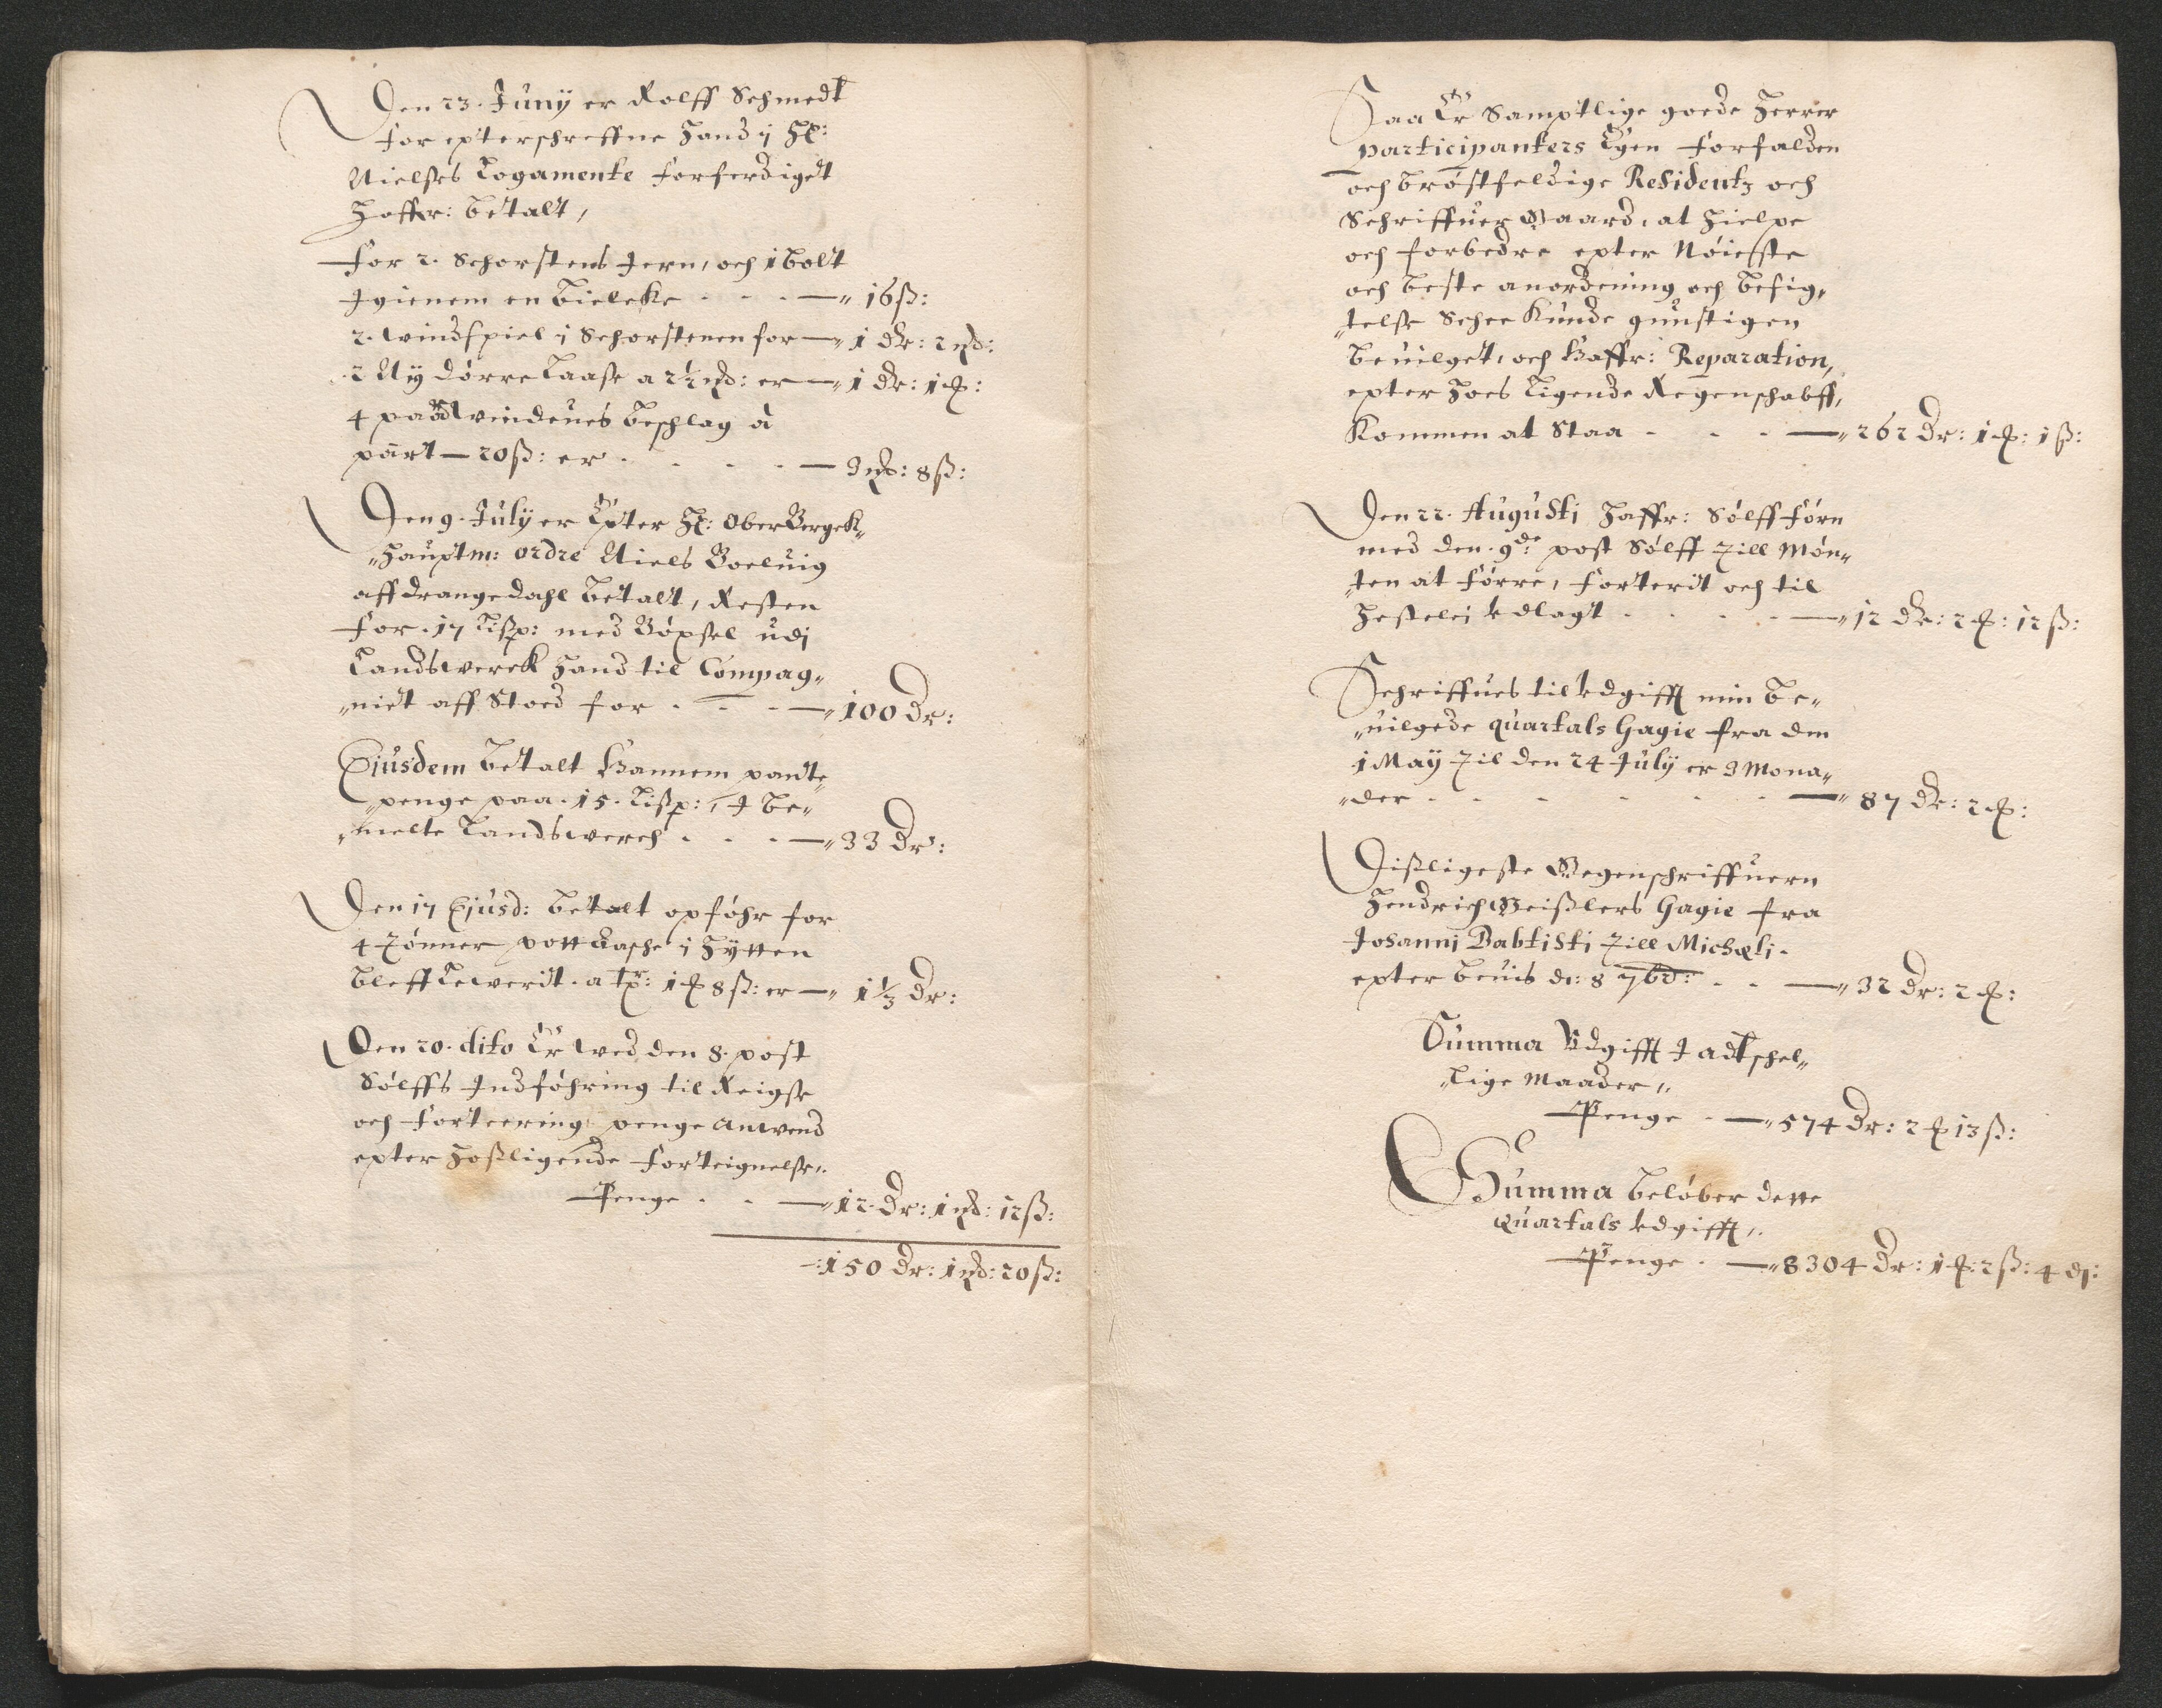 Den 23. Junij er Rolff Schmedt
for epterschreffne hand i H:
Nielses Logamente forferdiget
Hoffr: betalt,
for 2. Schorstens Jern, och 1 bolt
Igienem en bielcke - - - 16 ß:
2. windspiel i Schorstenen for — 1 dr: 2 mk:
2 Ny dørre Laase a 2½ mk: er — 1 dr: 1 mk:
4 paar windeues beschlag a
part — 20 ß: er - - - 3 mk: 8 ß:
Den 9. July er Epter H: Ober Bergck-
"hauptm: ordre Niels Boeluig
aff drangedahl betalt, Resten
for. 17 Lißp: med Böxsel udj
Landswerck hand til Compag-
"niet aff Stoed for - - - 100 Dr:
Ejusdem betalt hannem pante-
"penge paa. 15. Lißp:, I be-
"melte Landswerch - - - 33 Dr:
Den 17 Ejusd: betalt opføhr for
4 tønner pottaasche i Hytten
bleff Leweridt. a tr: 1 mk 8 ß: er — 1⅓ Dr:
Den 20. dito Er wed den 8. post
Sølffs Indføhring til Reigse
och forteering, penge anwend
epter hoßligende forteignelse,.
Penge - - — 12 Dr: 1 mk: 12 ß:
150 Dr: 1 mk: 20 ß:
Saa Er Samptlige goede Herrer
participanters Egen forfalden
och brøstfeldige Residentz och
Schriffuer Gaard, at hielpe
och forbedre epter Nøieste
och beste anordening och befig-
"telse Schee kunde gunstigen
beuilget, och haffr: Reparation,
epter hoes Ligende Regenschabff,
kommen at Staa - - - 262 Dr: 1 mk: 1 ß:
Den 22. Augusti haffr: Sølfførn
med den. 9de: post Sølff till Møn-
"ten at førre, forterit och til
hesteleie udlagt - - - 12 Dr: 2 mk: 12 ß:
Schriffues til udgifft min be-
"uilgede quartals Gagie fra den
1 May til den 24 July er 3 Mona-
"der - - - - - 87 Dr: 2 mk:
Dißligeste Gegenschriffuern
Hendrich Geißlers Gagie fra
Johanni Babtisti till Michæli.
epter beuis de: 8 7bd: - - 32 Dr: 2 mk:
Summa Udgifft I adtschel-
"lige Maader,.
Penge - — 574 Dr: 2 mk 13 ß:
Summa beløber dette
quartals udgifft,.
Penge - — 8304 Dr: 1 mk: 2 ß: 4 d: